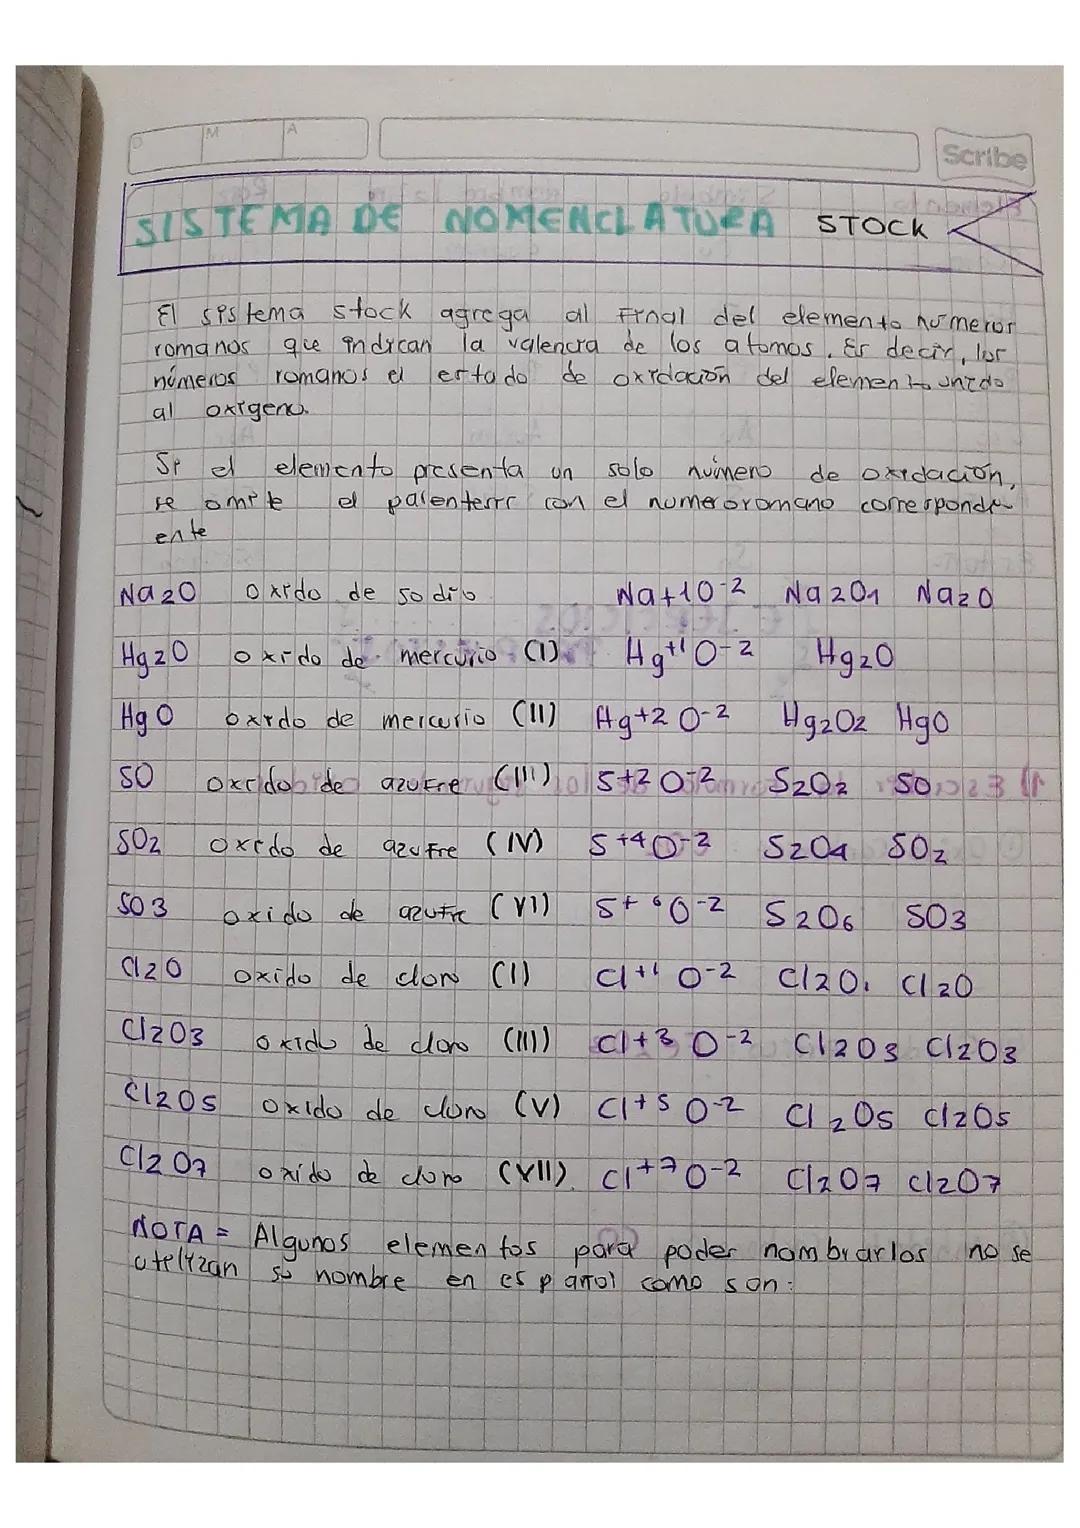 M A
Scribe
SISTEMA DE NOMENCLATURA STOCK
El sistema stock agrega al final del elemento números
romanos que indican la valencia de los atomos. Es decir, los
números romanos el estado de oxidación del elemento unido
al oxigeno.
Si el elemento presenta un solo número de oxidación,
se omite el palentesis con el numero romano correspondi-
ente
Na2O Oxido de sodio Na+1O-2 Na2O1 Na2O
Hg2O oxido de mercurio (I) Hg+1O-2 Hg2O
HgO oxido de mercurio (II) Hg+2O-2 Hg2O2 HgO
SO oxido de azufre (III) S+2O-2 S2O2 SO
SO2 oxido de azufre (IV) S+4O-2 S2O4 SO2
SO3 oxido de azufre (VI) S+6O-2 S2O6 SO3
Cl2O oxido de cloro (I) Cl+1O-2 Cl2O1 Cl2O
Cl2O3 oxido de cloro (III) Cl+3O-2 Cl2O3 Cl2O3
Cl2O5 oxido de cloro (V) Cl+5O-2 Cl2O5 Cl2O5
Cl2O7 oxido de cloro (VII) Cl+7O-2 Cl2O7 Cl2O7
NOTA = Algunos elementos para poder nombrarlos no se
utilizan su nombre en español como son: